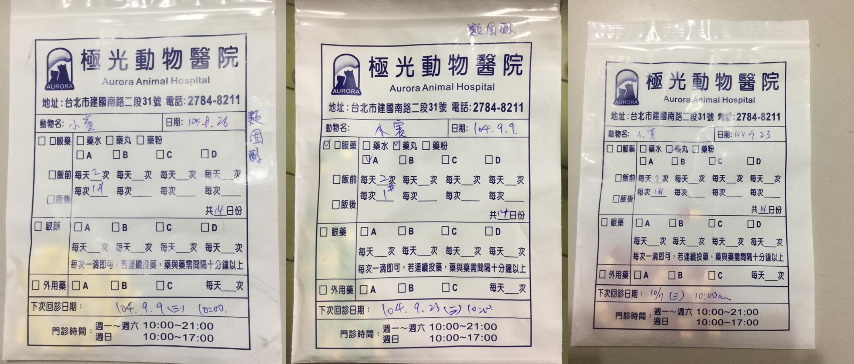 極光動物醫院
Aurora Animal Hospital
AURORA
地址:台北市建國南路二段31號 電話:2784-8211
動物名: 小寶 日期: 104.8.26
類固醇
□口服藥 □藥水 □藥丸 □藥粉
□A □B □C □D
□飯前 每天2次 每天__次 每天__次 每天__次
□飯後 每次1顆 每次__ 每次__ 每次__
共14日份
□眼藥 □A □B □C □D
每天__次 每天__次 每天__次 每天__次
每次一滴即可,若連續投藥,藥與藥需間隔十分鐘以上
□外用藥 □A □B □C 每天__次
下次回診日期: 104.9.9(三) 10:00
門診時間: 週一~週六 10:00~21:00
週日 10:00~17:00
類固醇
極光動物醫院
Aurora Animal Hospital
AURORA
地址:台北市建國南路二段31號 電話:2784-8211
動物名: 小寶 日期: 104.9.9
☑口服藥 □藥水 ☑藥丸 □藥粉
☑A □B □C □D
□飯前 每天2次 每天__次 每天__次 每天__次
□飯後 每次1 每次__ 每次__ 每次__
共14日份
□眼藥 □A □B □C □D
每天__次 每天__次 每天__次 每天__次
每次一滴即可,若連續投藥,藥與藥需間隔十分鐘以上
□外用藥 □A □B □C 每天__次
下次回診日期: 104.9.23(三) 10:00
門診時間: 週一~週六 10:00~21:00
週日 10:00~17:00
極光動物醫院
Aurora Animal Hospital
AURORA
地址:台北市建國南路二段31號 電話:2784-8211
動物名: 小寶 日期: 104.9.23
□口服藥 □藥水 □藥丸 □藥粉
□A □B □C □D
□飯前 每天2次 每天__次 每天__次 每天__次
□飯後 每次1顆 每次__ 每次__ 每次__
共14日份
□眼藥 □A □B □C □D
每天__次 每天__次 每天__次 每天__次
每次一滴即可,若連續投藥,藥與藥需間隔十分鐘以上
□外用藥 □A □B □C 每天__次
下次回診日期: (三) 10:00am
門診時間: 週一~週六 10:00~21:00
週日 10:00~17:00